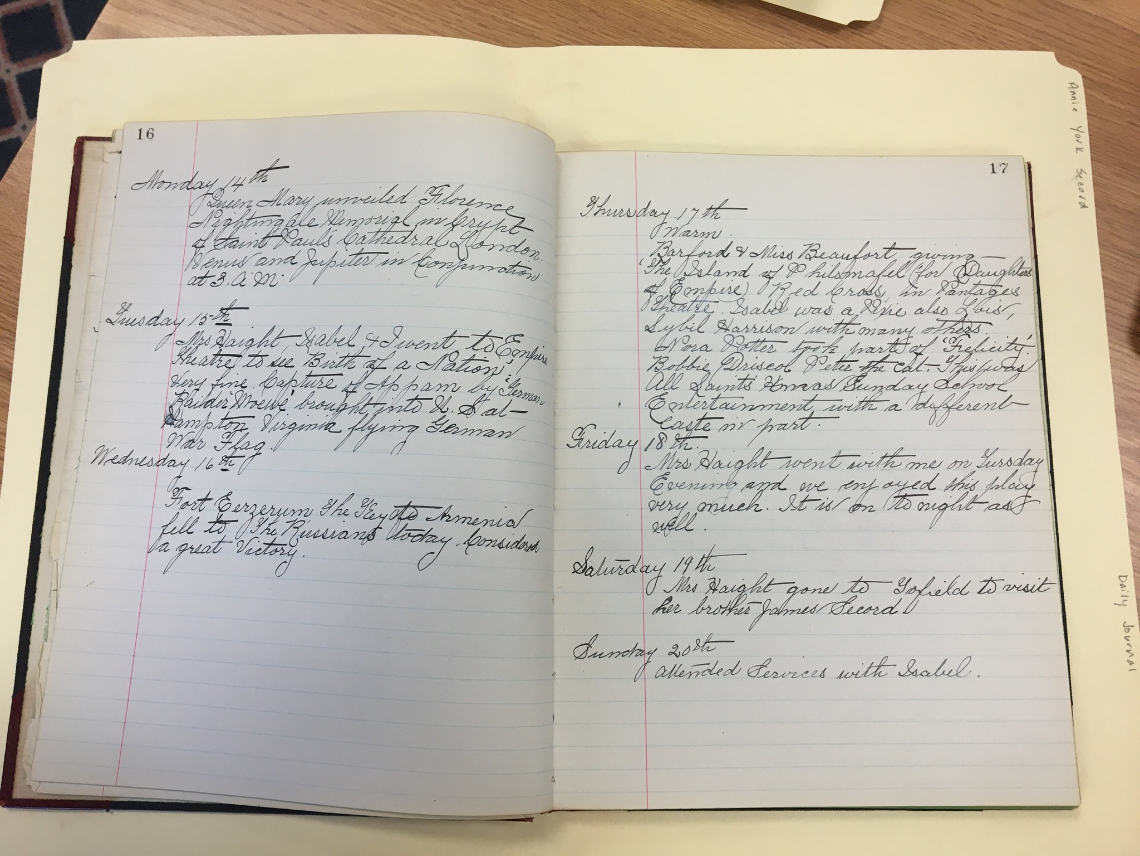 16
Monday 14th
Queen Mary unveiled Florence
Nightingale Memorial in Crypt
of Saint Paul's Cathedral London.
Venus and Jupiter in Conjunction
at 3. A.M.
Tuesday 15th
Mrs Haight Isabel & I went to Empire
theatre to see Birth of a Nation
very fine. Capture of Appam by German
Raider Moewe brought into U. S. at
Hampton Virginia flying German
War Flag.
Wednesday 16th
Fort Eerzerum The Key to Armenia
fell to The Russians today. Considered
a great Victory.
17
Thursday 17th
Warm.
Barford & Miss Beaufort, giving
'The Island of (for Daughters
of Empire) Red Cross, in Pantages
Theatre. Isabel was a also Lois,
Sybil Harrison with many others
Nora Potter took part of 'Felicity'.
Bobbie Driscol Peter the Cat. This was
All Saints Xmas Sunday School
Entertainment with a different
Caste in part.
Friday 18th.
Mrs Haight went with me on Tuesday
Evening and we enjoyed this play
very much. It is on to night as
well.
Saturday 19th
Mrs Haight gone to Tofield to visit
her brother James Secord.
Sunday 20th
attended Services with Isabel.
Annie York Secord
Daily Journal